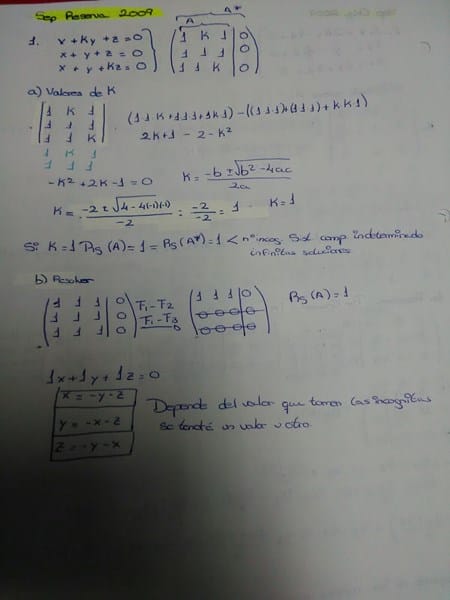 Sep Reserva 2009
A*
A
1. x + Ky + z = 0
x + y + z = 0
x + y + Kz = 0
1 K 1 0
1 1 1 0
1 1 K 0
a) Valores de K
1 K 1
1 1 1
1 1 K
1 K 1
1 1 1
(1 1 K + 1 1 1 + 1 K 1) - ((1 1 1) + (1 1 1) + K K 1)
2K + 1 - 2 - K²
-K² + 2K - 1 = 0 K = -b ± √b² - 4ac / 2a
K = -2 ± √4 - 4(-1)(-1) / -2 = -2 / -2 = 1 K = 1
Si K = 1 Rg (A) = 1 = Rg (A*) = 1 < nº incog. Sist comp indeterminado
infinitas soluciones
b) Resolver
1 1 1 0
1 1 1 0
1 1 1 0
F1 - F2
F1 - F3
1 1 1 0
0 0 0 0
0 0 0 0
Rg (A) = 1
1x + 1y + 1z = 0
x = -y - z
y = -x - z
z = -y - x
Depende del valor que tomen las incognitas
se tendrá un valor u otro.